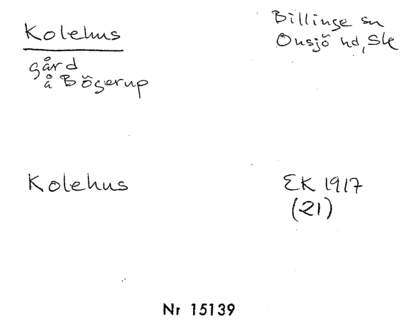 Kolehus
gård
å Bögerup
Billinge sn
Onsjö hd, Sk
Kolehus
EK 1917
(21)
Nr 15139